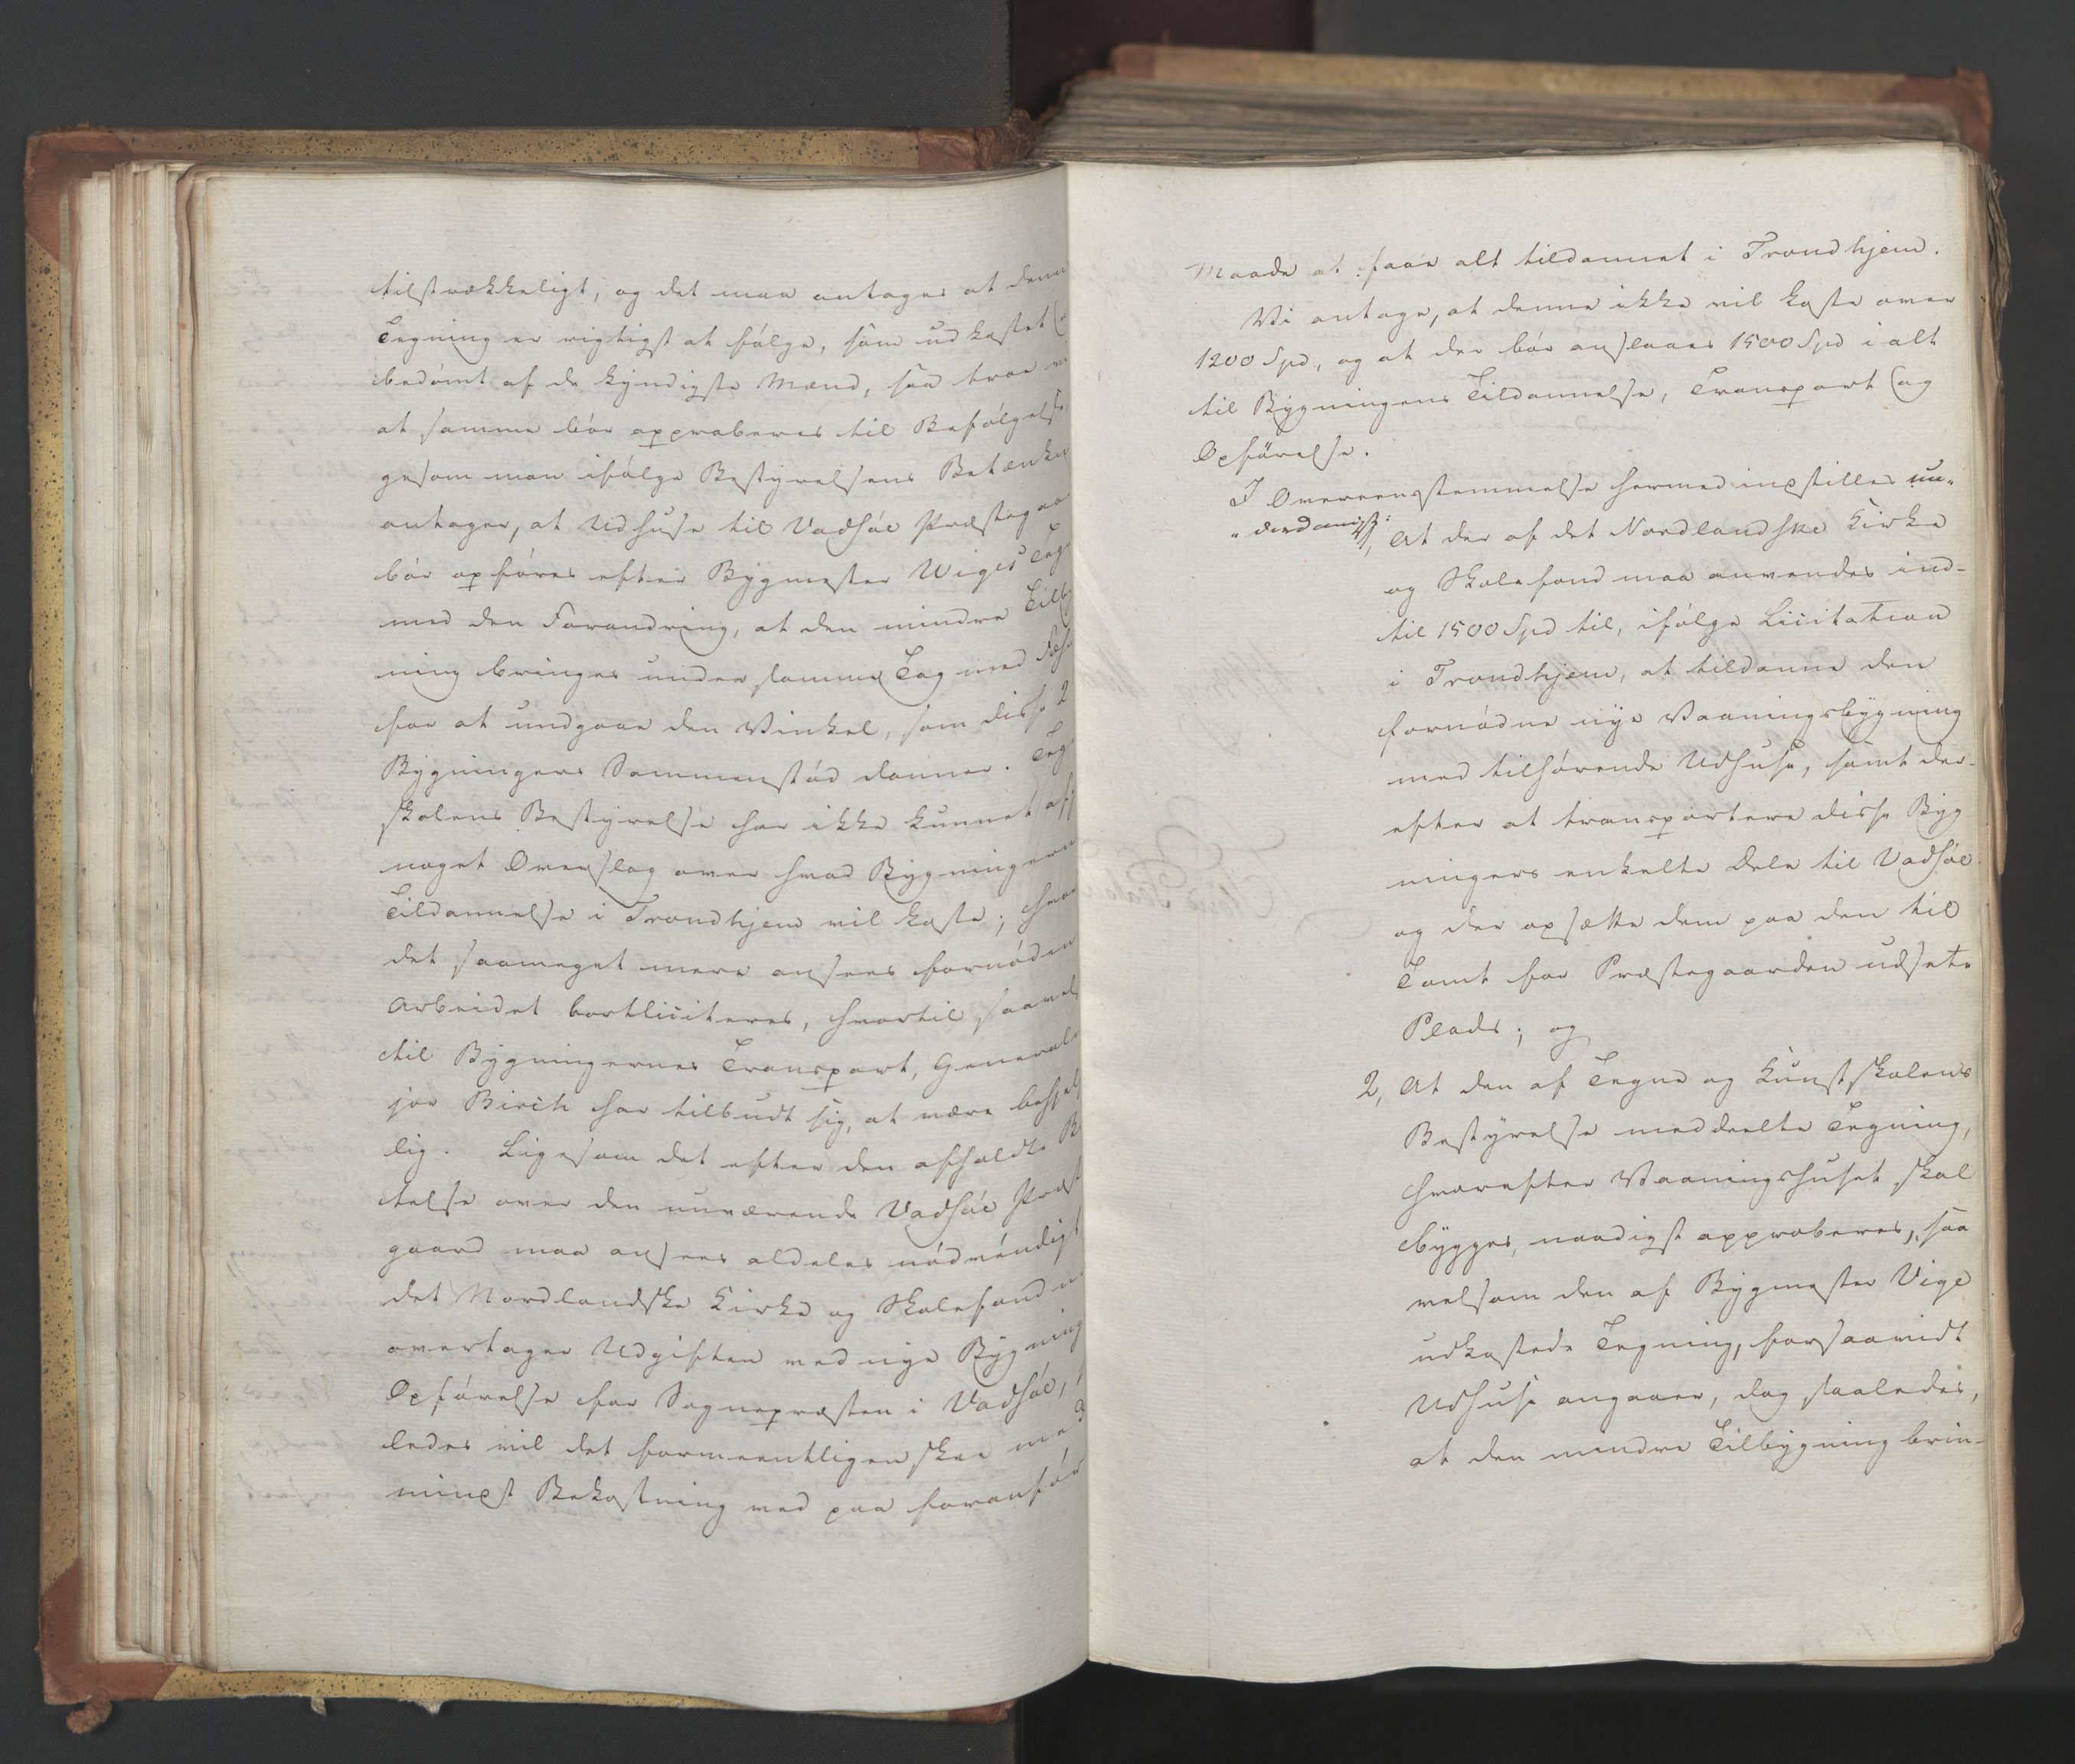 tilstrækkeligt, og det maa antages at denn
Tegning er rigtigst at følge, som udkastet
bedømt af de kyndigste Mænd, saa troe v
at samme bør approberes til Befølgelse
gesom man ifølge Bestyrelsens Betænkn
antager, at Udhuse til Vadsøe Præstegaa
bør opføres efter Bygmester Wiges Teg
med den Forandring, at den mindre Tilby
ning bringes under samme Tag med Fæh
for at undgaae den Vinkel, som disse 2
Bygningers Sammenstød danner. Teg
skolens Bestyrelse har ikke kunnet af
noget Overslag over hvad Bygningern
Tildannelse i Trondhjem vil koste; hvor
det saameget mere ansees fornøden
Arbeidet bortliciteres, hvortil saavel
til Bygningernes Transport, General
jor Birch har tilbudt sig, at være behjel
lig. Ligesom det efter den afholdte B
telse over den nuværende Vadsøe Præst
gaard maa ansees aldeles nødvendigt
det Nordlandske Kirke og Skolefond
overtager Udgiften ved nye Bygning
Opførelse for Sognepræsten i Vadsøe,
ledes vil det formeentligen skee med
mindst Bekostning ved paa foranfør
Maade at faae alt tildannet i Trondhjem.
Vi antage, at denne ikke vil koste over
1200 Spd, og at der bør anslaaes 1500 Spd i alt
til Bygningens Tildannelse, Transport og
Opførelse.
I Overeensstemmelse hermed indstilles un-
derdanigst:
1, At der af det Nordlandske Kirke
og Skolefond maa anvendes ind-
til 1500 Spd til, ifølge Licitation
i Trondhjem, at tildanne den
fornødne nye Vaaningsbygning
med tilhørende Udhuse, samt der-
efter at transportere disse Byg
ningers enkelte Dele til Vadsøe
og der opsætte dem paa den til
Tomt for Præstegaarden udsete
Plads; og
2, At den af Tegne og Kunstskolens
Bestyrelse meddeelte Tegning,
hvorefter Vaaningshuset skal
bygges, naadigst approberes, saa
velsom den af Bygmester Vige
udkastede Tegning, forsaavidt
Udhuse angaaer, dog saaledes,
at den mindre Tilbygning brin-